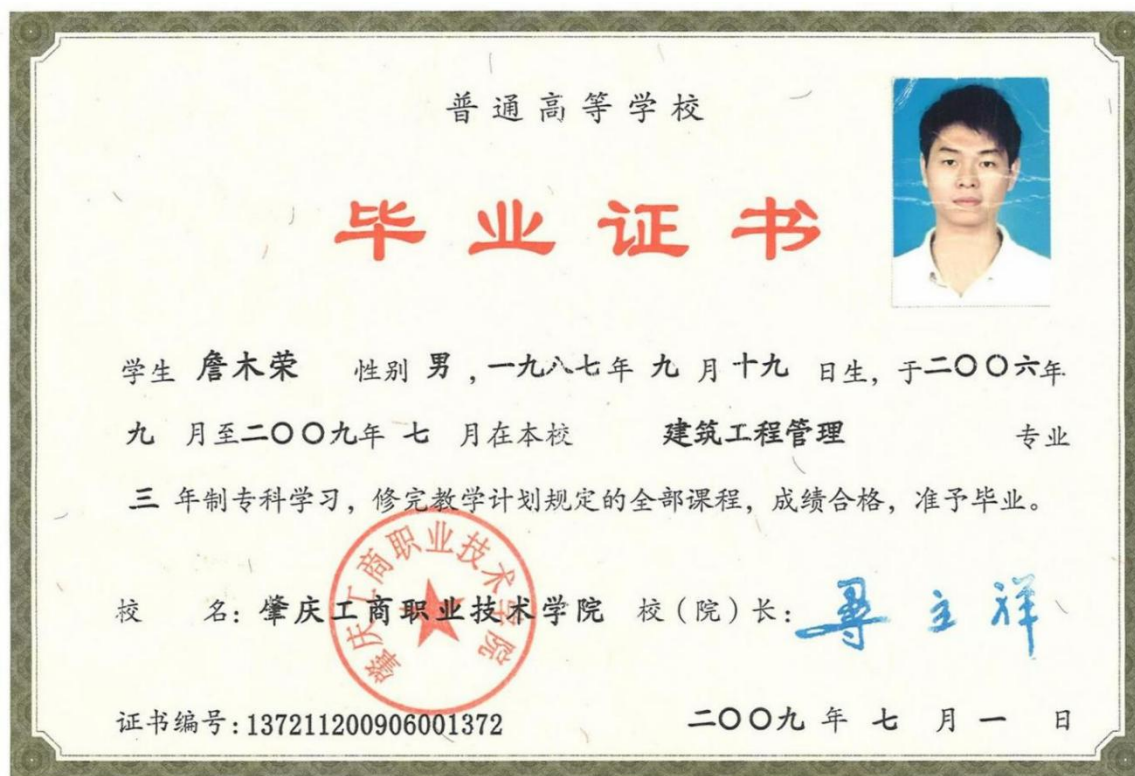 普通高等学校
毕业证书
学生 詹木荣 性别 男 ,一九八七年 九 月十九 日生, 于二〇〇六年
九 月至二〇〇九年 七 月在本校 建筑工程管理 专业
三 年制专科学习, 修完教学计划规定的全部课程, 成绩合格, 准予毕业。
肇庆工商职业技术学院
校 名: 肇庆工商职业技术学院 校(院)长: 寻立祥
证书编号: 137211200906001372 二〇〇九 年 七 月 一 日